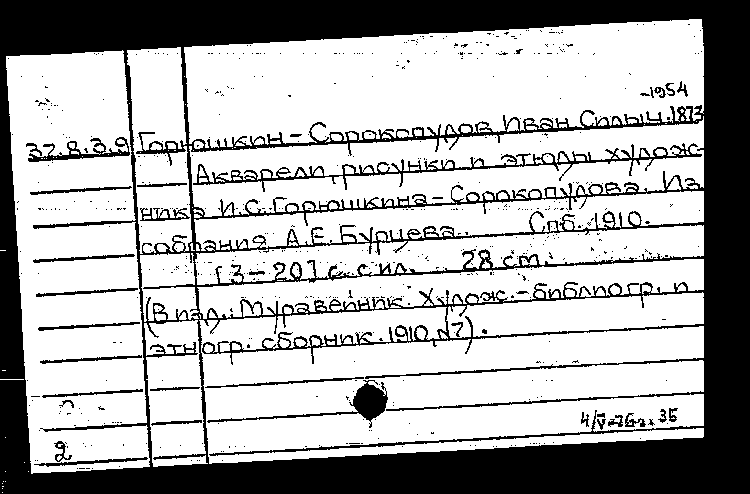 -1954
37.8.3.9 Горюшкин-Сорокопудов, Иван Силыч. 1873
Акварели, рисунки и этюды худож-
ника И.С. Горюшкина-Сорокопудова. Из
собрания А.Е. Бурцева. Спб., 1910.
[3-20] с. с ил. 28 ст.
(В изд.: Муравейник. Худож.-библиогр. и
этногр. сборник. 1910, №7).
35
2